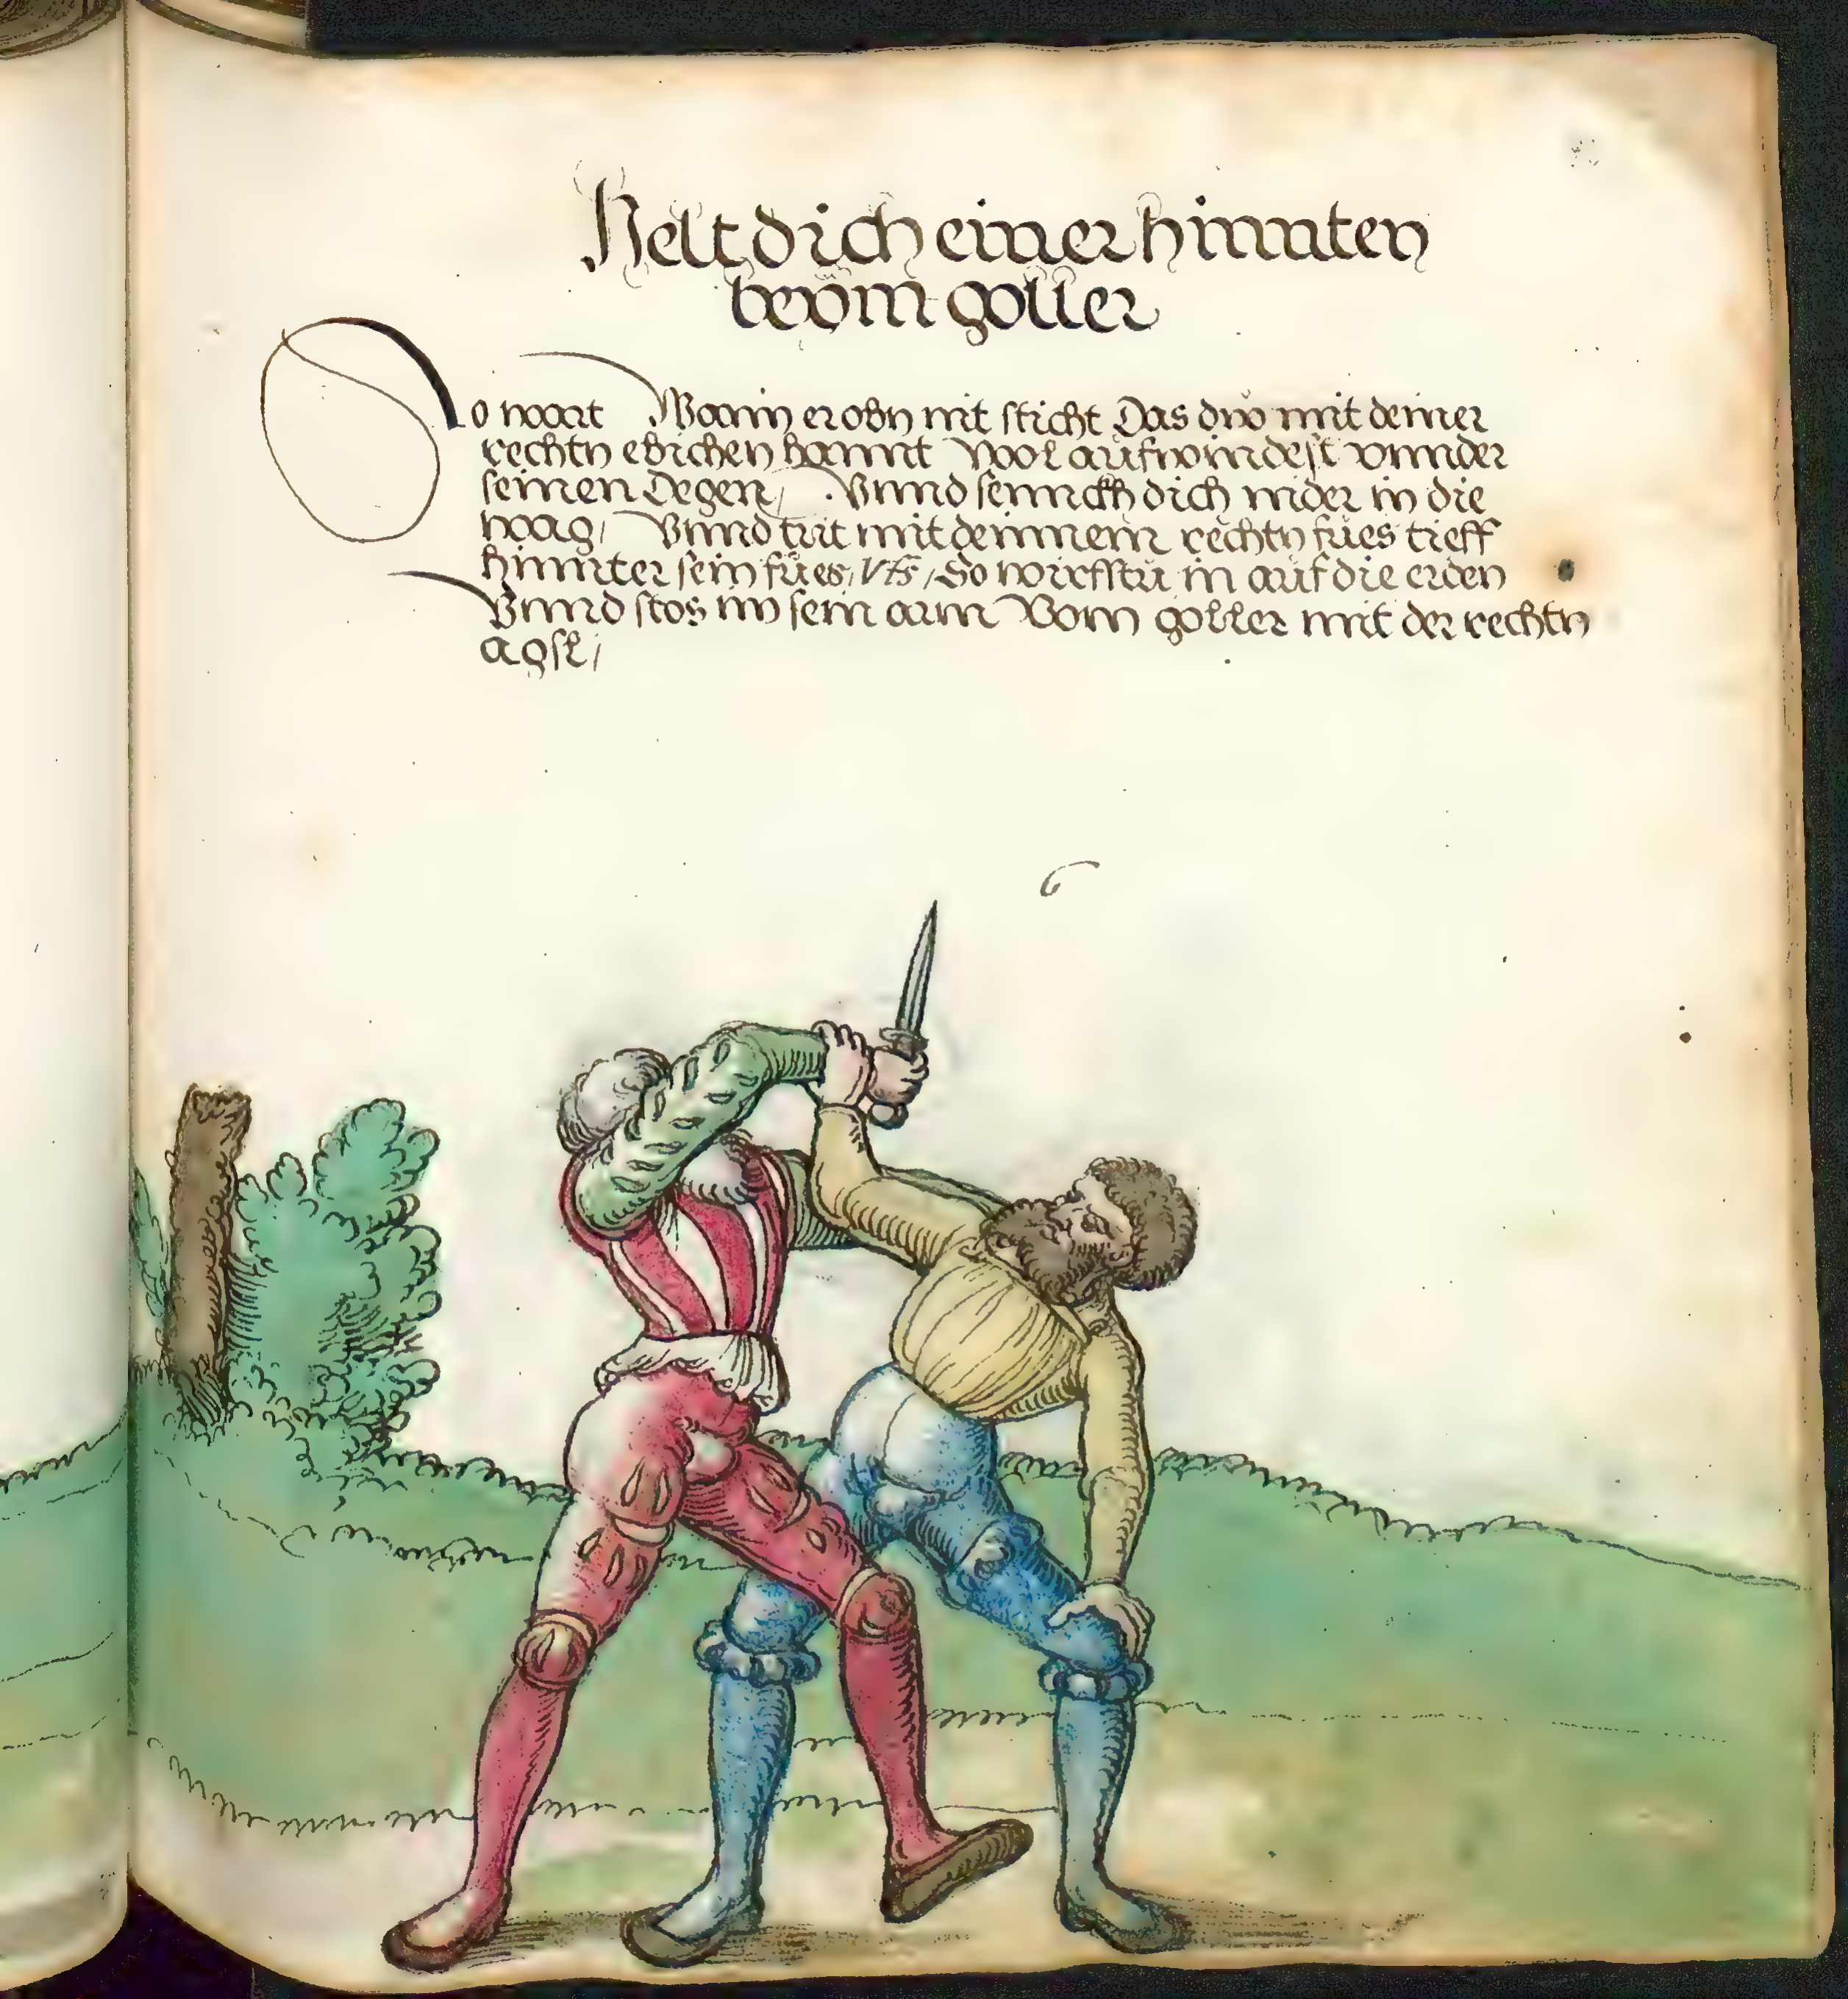 Helt dich einer hinnten
beÿm goller
So wart Wann er obn nit sticht Das dw mit deiner
rechtn ebichen hannt wol aufwindest vnnder
seinen Degen, Vnnd sennckh dich nider in die
waag, Vnnd trit mit deinnem rechtn fües tieff
hinnter sein fües, So wirfstu in auf die erden
Vnnd stos im sein arm Vom goller mit der rechtn
agsl,
6